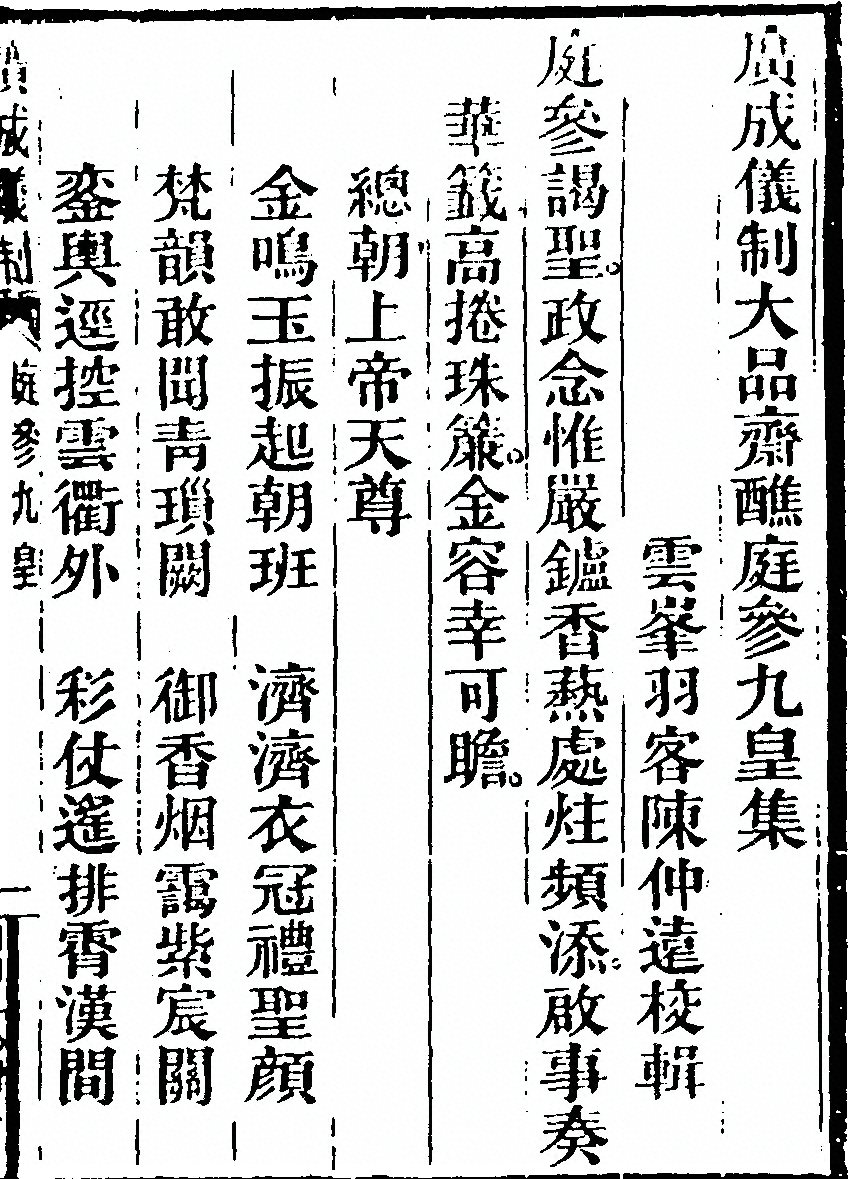 廣成儀制大品齋醮庭參九皇集
雲峯羽客陳仲遠校輯
庭參謁聖。政念惟嚴鑪香爇處炷頻添。啟事奏
華籤高捲珠簾。金容幸可瞻。
總朝上帝天尊
金鳴玉振起朝班 濟濟衣冠禮聖顔
梵韻敢聞靑瑣闕 御香烟靄紫宸關
鑾輿逕控雲衢外 彩仗遙排霄漢間
廣成儀制 庭參九皇 一